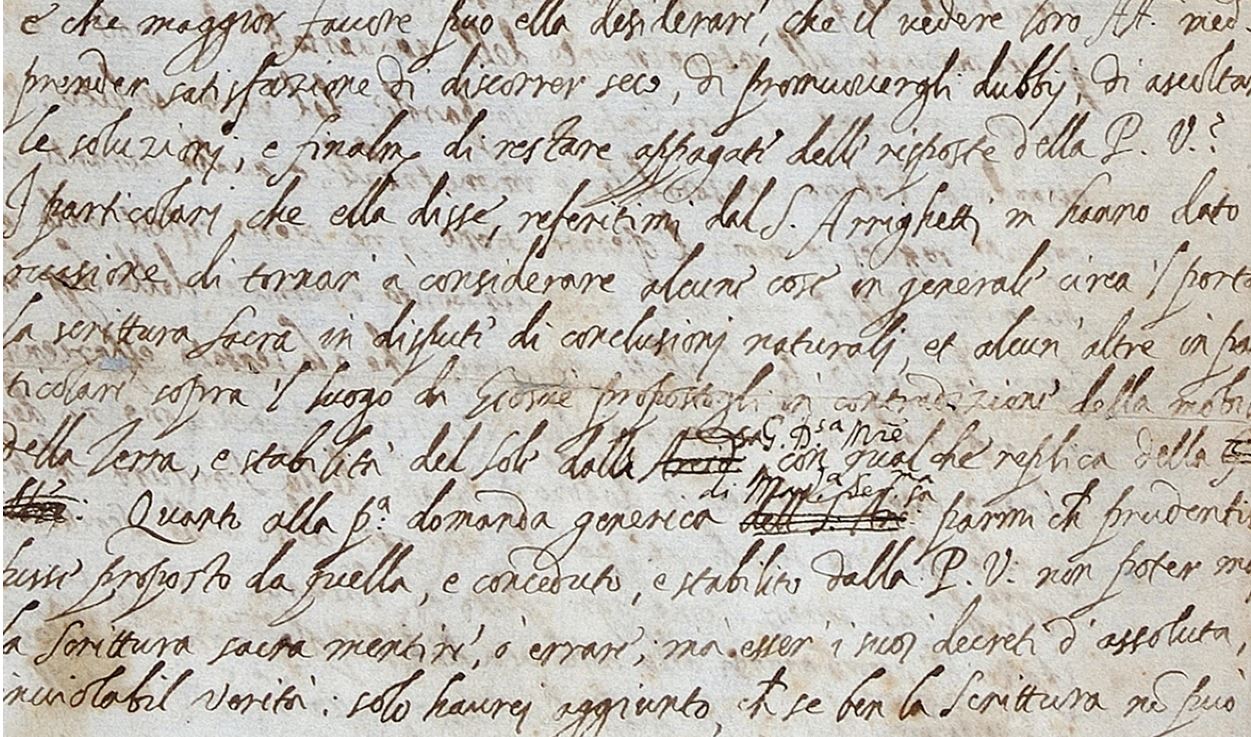 e che maggior favore può ella desiderare, che il vedere loro AA. med
prender satisfazione di discorrer seco, di promuovergli dubbij, di ascoltar
le soluzioni, e finalm. di restare appagate delle risposte della P. V.?
I particolari che ella disse, referitimi dal S. Arrighetti m hanno dato
occasione di tornar à considerare alcune cose in generale circa 'l porta
la scrittura sacra in dispute di conclusioni naturali, et alcun' altre in pa
ticolare sopra 'l luogo di Giosuè propostogli in contradizione della mobi
della Terra, e stabilità del Sole dalla G. D.sa M.re con qualche replica della
di Mad.a Ser.ma
Quanto alla p.a domanda generica parmi ch prudenti
fusse proposto da quella, e conceduto, e stabilito dalla P. V. non poter ma
la Scrittura sacra mentire, ò errare, mà esser i suoi decreti d' assoluta,
inviolabil verità: solo haurei aggiunto, ch se ben la Scrittura nõ può